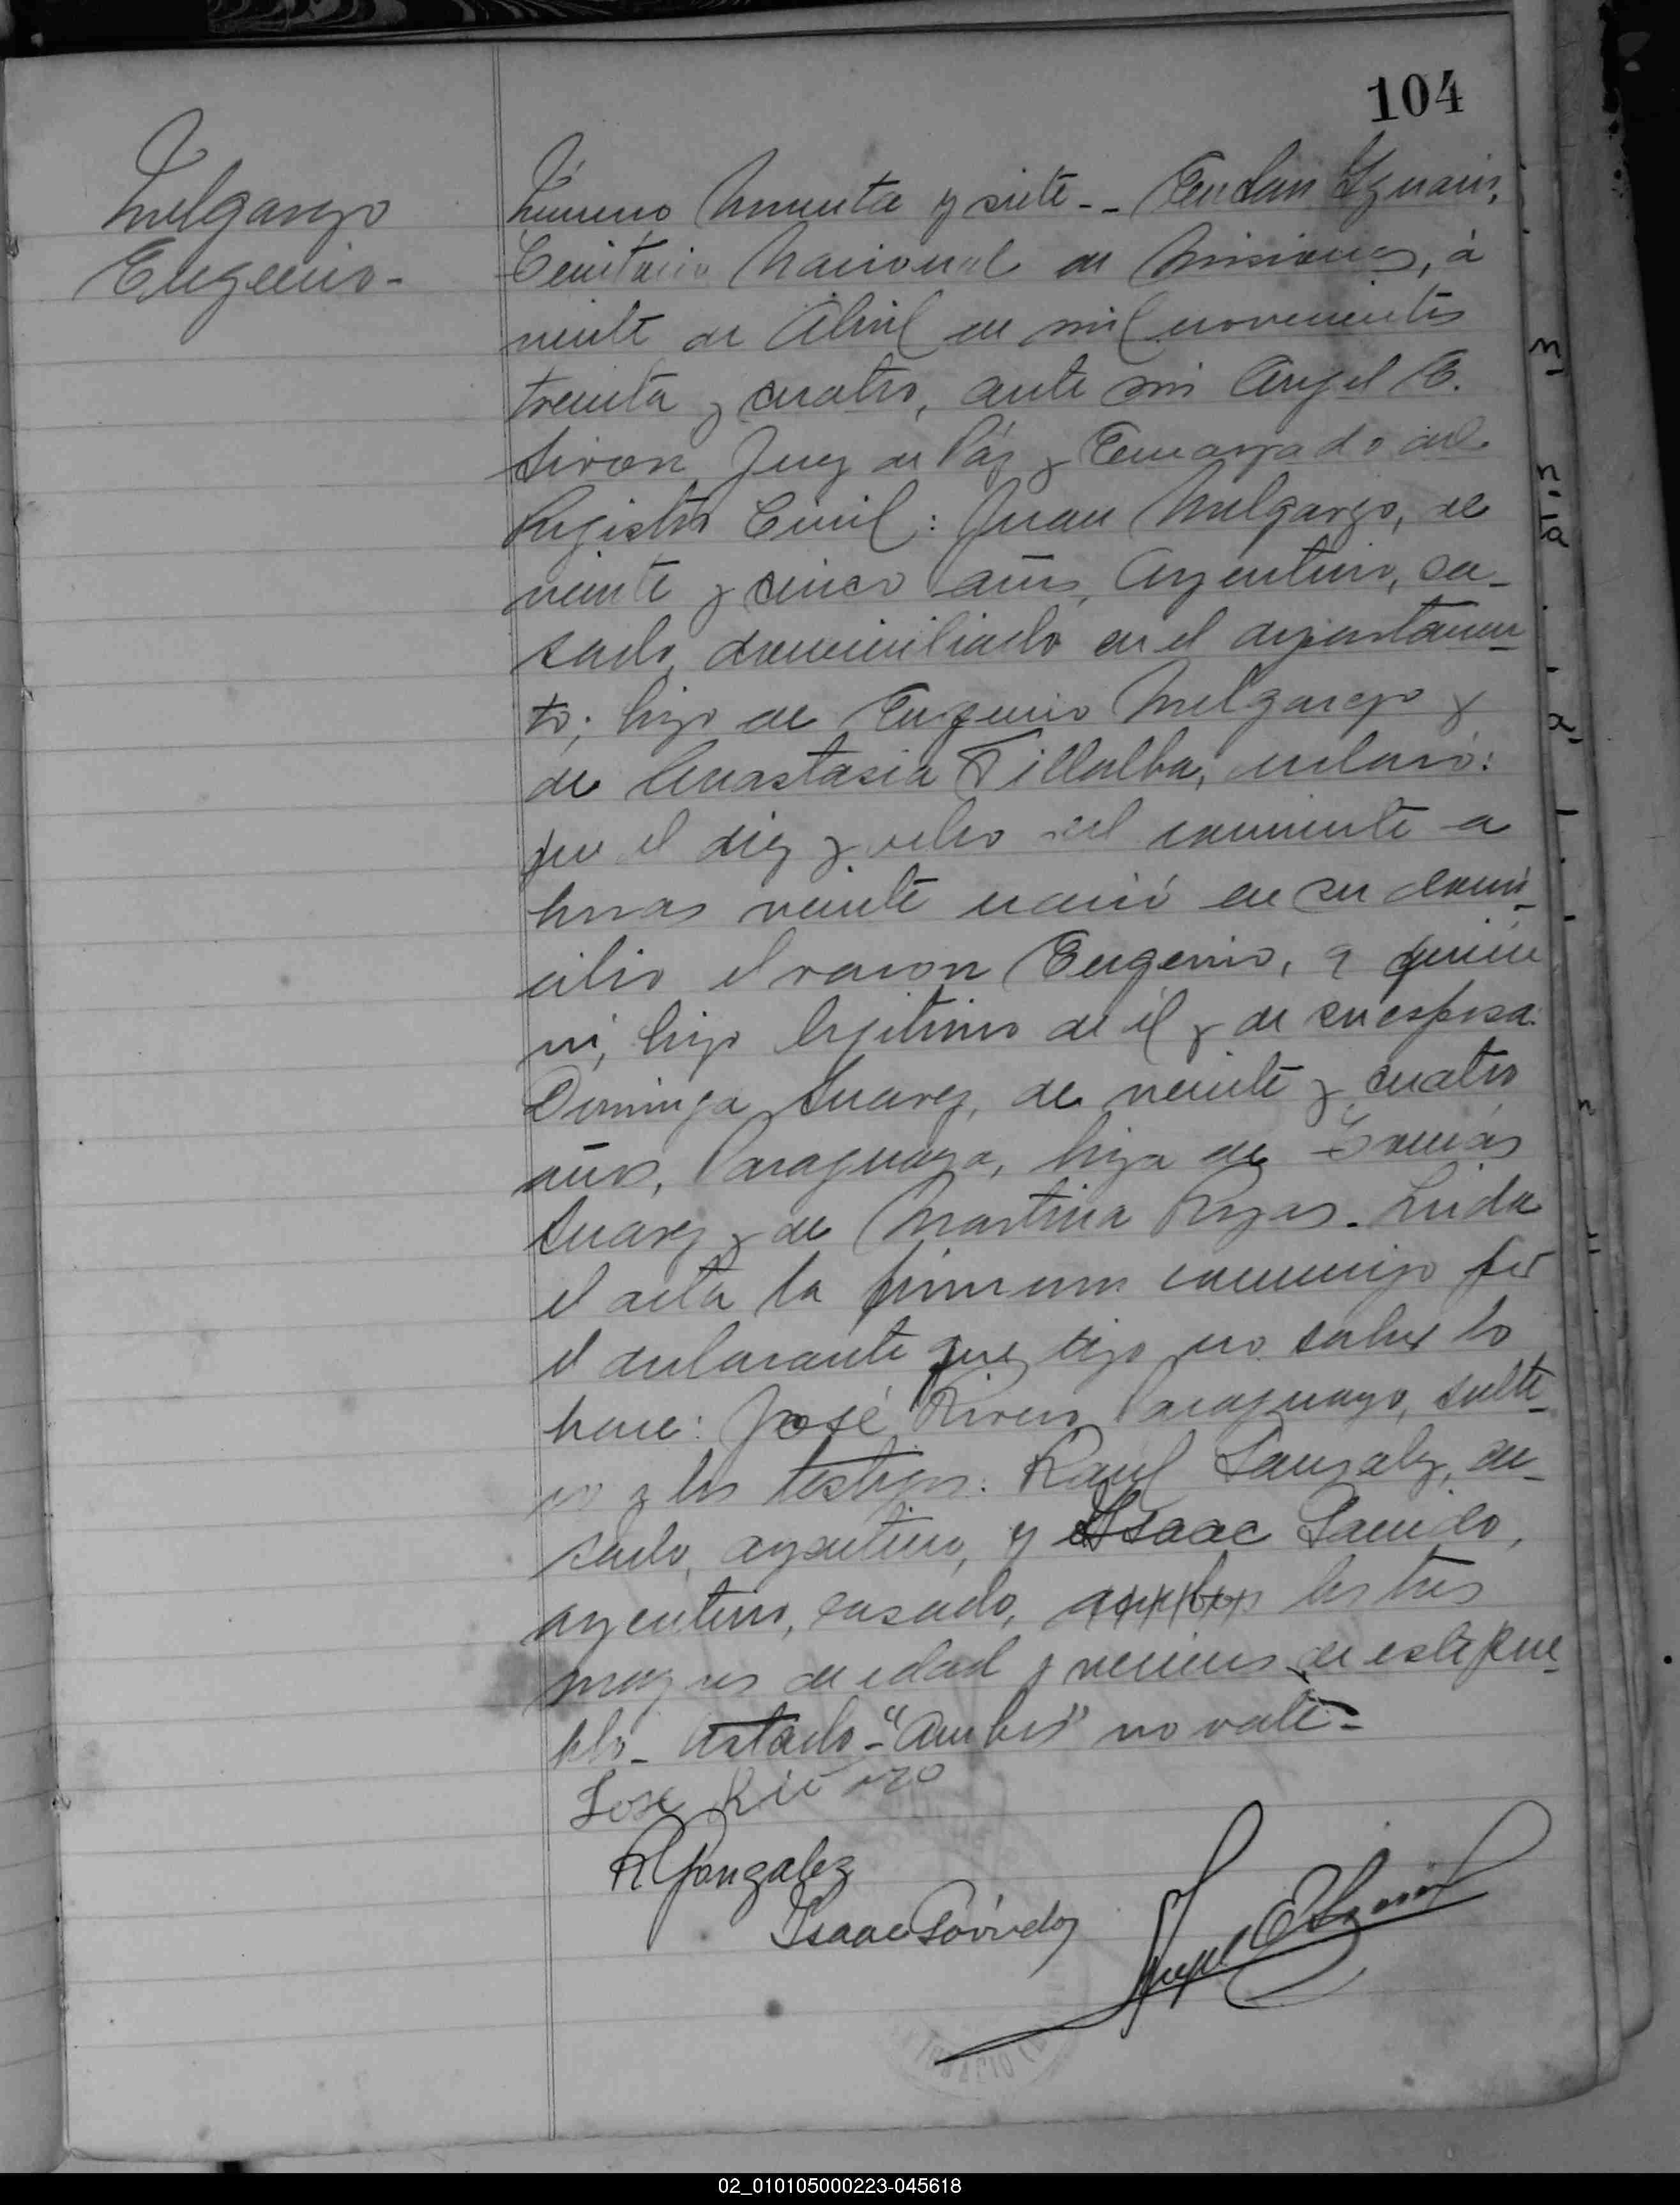 104
Melgarejo
Eugenio-
Número Noventa y siete-- En San Ignacio,
Territorio Nacional de Misiones, á
veinte de Abril de mil novecientos
treinta y cuatro, ante mi Angel E.
Juez de Páz y Encargado del
Registro Civil: Juan Melgarejo, de
veinte y cinco años, Argentino, ca-
sado, domiciliado en el departamen-
to; hijo de Eugenio Melgarejo y
de Anastasia Villalba, declaró:
que el diez y ocho del corriente a
horas veinte nació en su domi-
cilio el varon Eugenio, a quien
ví, hijo legítimo de él y de su esposa
Dominga Suarez, de veinte y cuatro
años, Paraguaya, hija de Tomás
Suarez y de Martina Rojas. Leida
el acta la firmaron conmigo por
el declarante que dijo no saber lo
hace: José Rivero, Paraguayo, solte-
ro y los testigos: Raúl Gonzalez, ca-
sado, argentino, y Isaac Garrido,
argentino, casado, ambos los tres
mayores de edad y vecinos de este pue-
blo- testado-"Ambos" no vale-
Jose Rivero
R Gonzalez
Isaac Garrido
Angel E
02_010105000223-045618